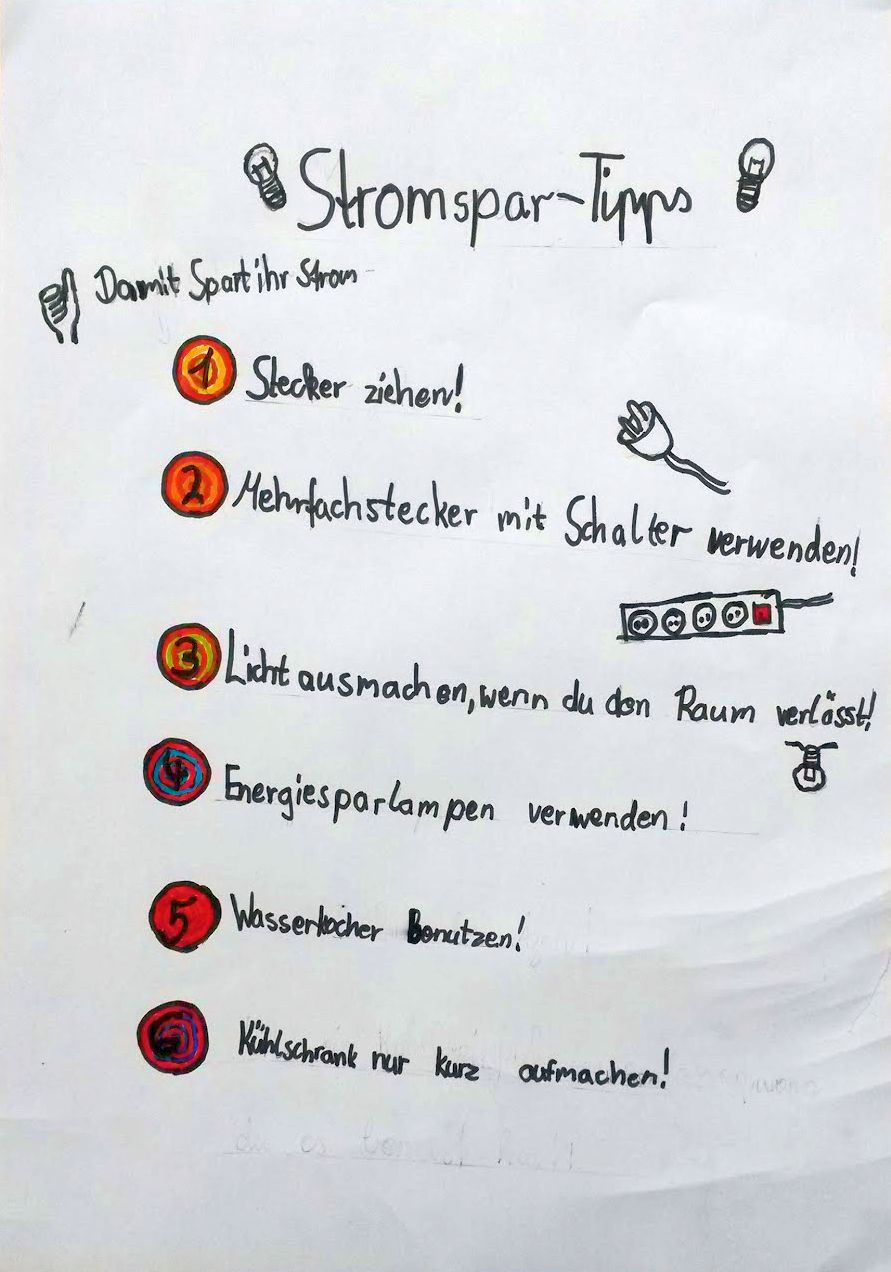 Stromspar-Tipps
Damit Spart ihr Strom
1 Stecker ziehen!
2 Mehrfachstecker mit Schalter verwenden!
3 Licht ausmachen, wenn du den Raum verlässt!
4 Energiesparlampen verwenden!
5 Wasserkocher Benutzen!
Kühlschrank nur kurz aufmachen!